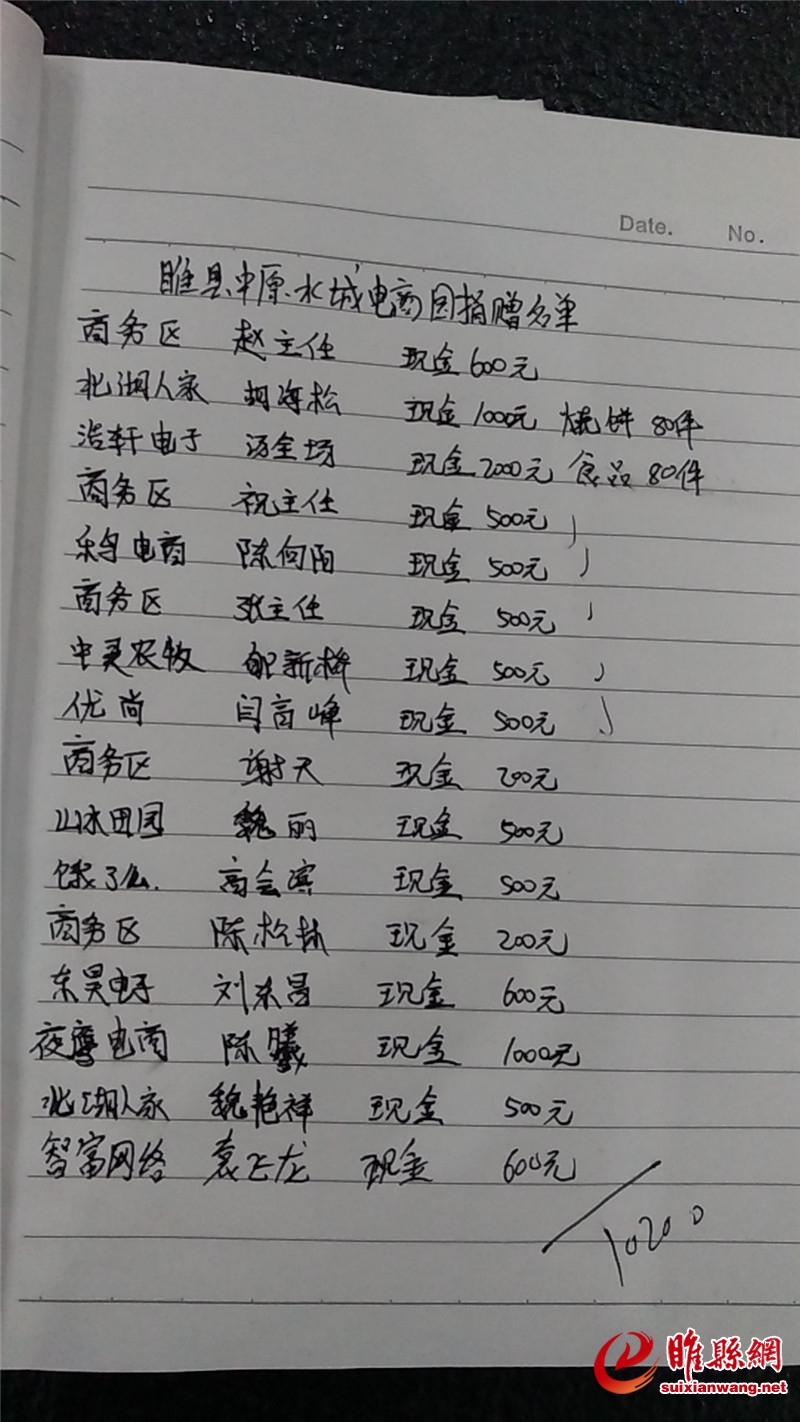 Date. No.
睢县中原水城电商园捐赠名单
商务区 赵主任 现金600元
北湖人家 胡海松 现金1000元 焜饼80件
浩轩电子 汤全场 现金2000元 食品80件
商务区 祝主任 现金500元
电商 陈向阳 现金500元
商务区 张主任 现金500元
中灵农牧 新梅 现金500元
优尚 闫高峰 现金500元
商务区 谢天 现金200元
山水田园 魏丽 现金500元
饿了么. 高会宾 现金500元
商务区 陈松林 现金200元
东昊电子 刘东昌 现金600元
夜鹰电商 陈曦 现金1000元
北湖人家 魏艳祥 现金500元
智富网络 袁飞龙 现金600元
10200
睢縣網
suixianwang.net